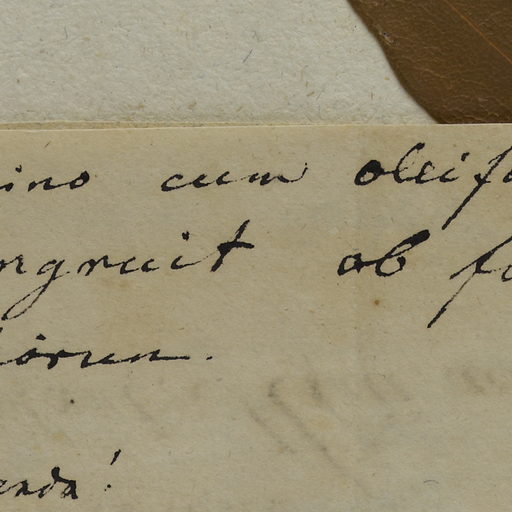 ino cum oleifo
ngruit ob fo
iorum.
enda!